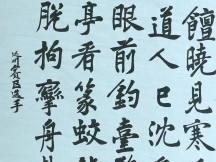 饘曉見寒
道人已沈
眼前釣臺
亭看篆蛟
脫拘攣舟